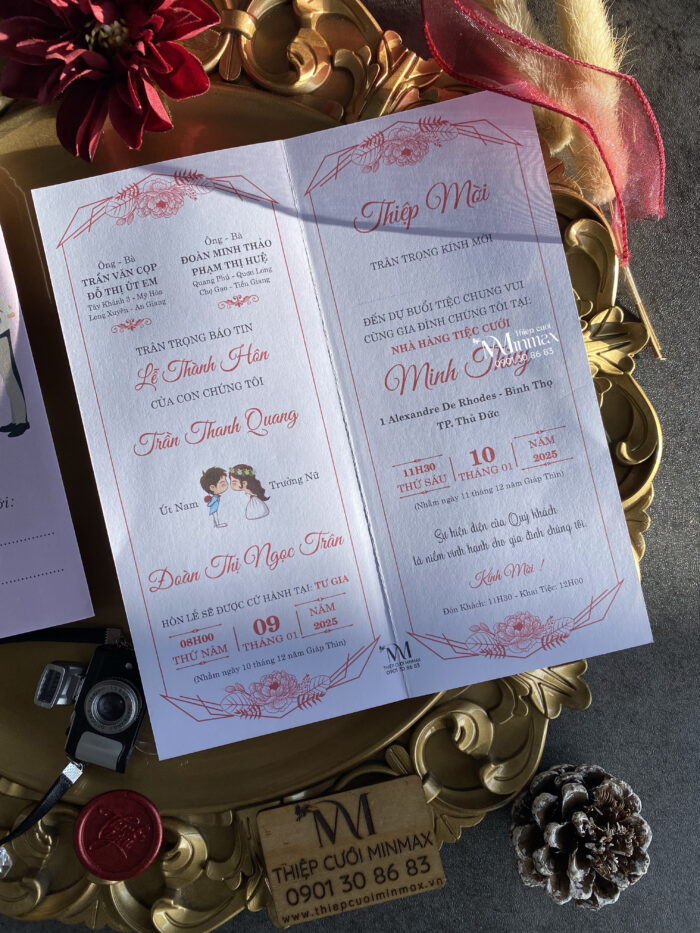 Ông - Bà
TRẦN VĂN CỌP
ĐỖ THỊ ÚT EM
Tây Khánh 3 - Mỹ Hòa
Long Xuyên - An Giang
Ông - Bà
ĐOÀN MINH THẢO
PHẠM THỊ HUỆ
Quang Phú - Quơn Long
Chợ Gạo - Tiền Giang
TRÂN TRỌNG BÁO TIN
Lễ Thành Hôn
CỦA CON CHÚNG TÔI
Trần Thanh Quang
Út Nam
Trưởng Nữ
Đoàn Thị Ngọc Trân
HÔN LỄ SẼ ĐƯỢC CỬ HÀNH TẠI: TƯ GIA
08H00
THỨ NĂM
09
THÁNG 01
NĂM
2025
(Nhằm ngày 10 tháng 12 năm Giáp Thìn)
Thiệp Mời
TRÂN TRỌNG KÍNH MỜI
ĐẾN DỰ BUỔI TIỆC CHUNG VUI
CÙNG GIA ĐÌNH CHÚNG TÔI TẠI:
NHÀ HÀNG TIỆC CƯỚI
Minh Thùy
1 Alexandre De Rhodes - Bình Thọ
TP. Thủ Đức
11H30
THỨ SÁU
10
THÁNG 01
NĂM
2025
(Nhằm ngày 11 tháng 12 năm Giáp Thìn)
Sự hiện diện của Quý khách
là niềm vinh hạnh cho gia đình chúng tôi.
Kính Mời !
Đón Khách: 11H30 - Khai Tiệc: 12H00
Thiệp cưới
Minmax
0901 30 86 83
THIỆP CƯỚI MINMAX
0901 30 86 83
ời:
THIỆP CƯỚI MINMAX
0901 30 86 83
www.thiepcuoiminmax.vn